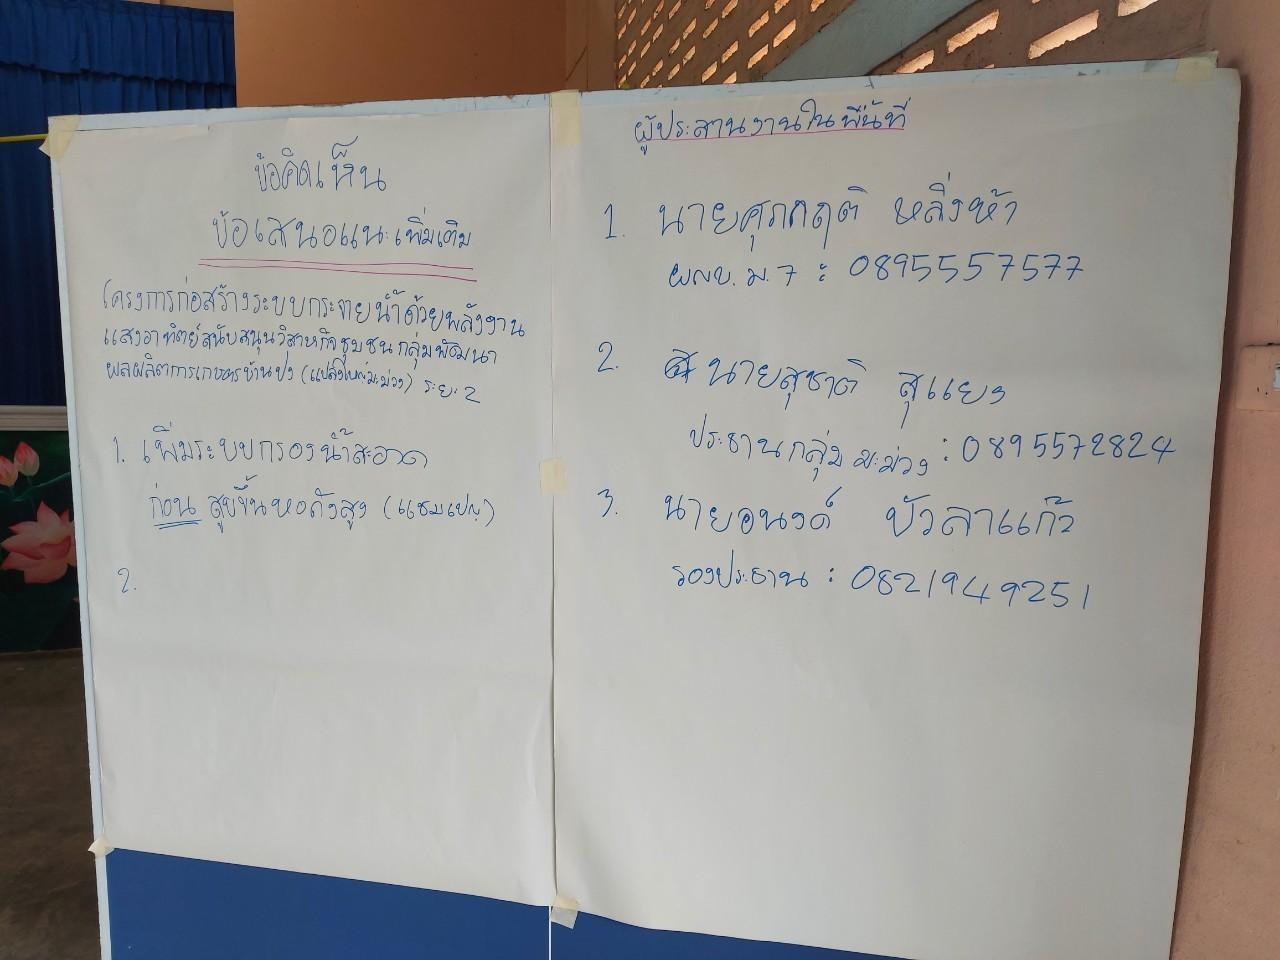 ข้อคิดเห็น
ข้อเสนอแนะเพิ่มเติม
โครงการก่อสร้างระบบกระจายน้ำด้วยพลังงาน
แสงอาทิตย์สนับสนุนวิสาหกิจชุมชนกลุ่มพัฒนา
ผลผลิตการเกษตรบ้านปง (แปลงใหญ่มะม่วง) ระยะ 2
1. เพิ่มระบบกรองน้ำสะอาด
ก่อน สูบขึ้นหอถังสูง (แชมเปญ)
2.
ผู้ประสานงานในพื้นที่
1. นายศุภกฤติ หลิ่งห้า
ผญบ.ม.7 : 0895557577
2. นายสุชาติ สุแยง
ประธานกลุ่มมะม่วง : 0895572824
3. นายอนงค์ บัวลาแก้ว
รองประธาน : 0821949251